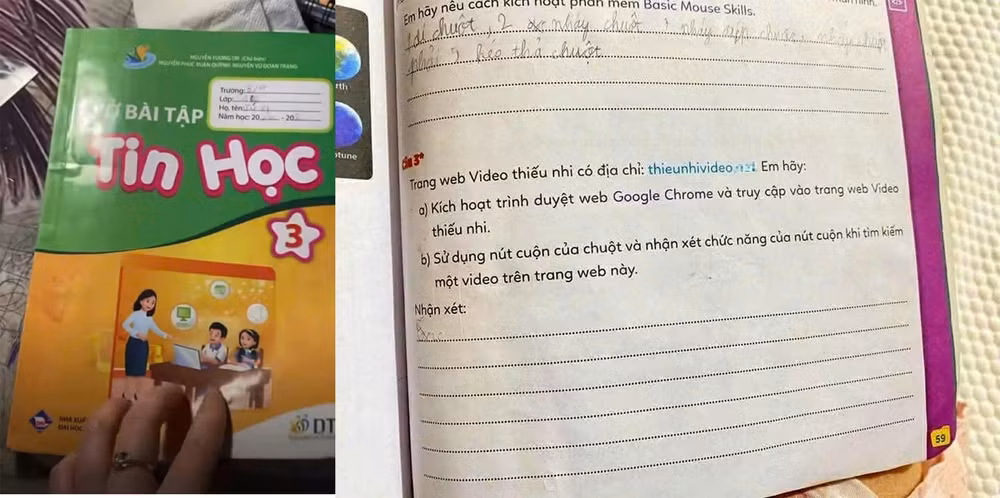 NGUYỄN TƯƠNG TRI (Chủ biên)
NGUYỄN PHÚC XUÂN QUỲNH, NGUYỄN VŨ ĐOAN TRANG
Trường:
Lớp:
Họ, tên:
Năm học: 20 - 20
BÀI TẬP
Tin Học
3
NHÀ XUẤT
ĐẠI HỌC
DT
rth
ptune
Em hãy nêu cách kích hoạt phần mềm Basic Mouse Skills.
chuột, 2 nháy chuột, nháy
phải, kéo thả chuột
Câu 3*
Trang web Video thiếu nhi có địa chỉ: thieunhivideo. Em hãy:
a) Kích hoạt trình duyệt web Google Chrome và truy cập vào trang web Video
thiếu nhi.
b) Sử dụng nút cuộn của chuột và nhận xét chức năng của nút cuộn khi tìm kiếm
một video trên trang web này.
Nhận xét:
59